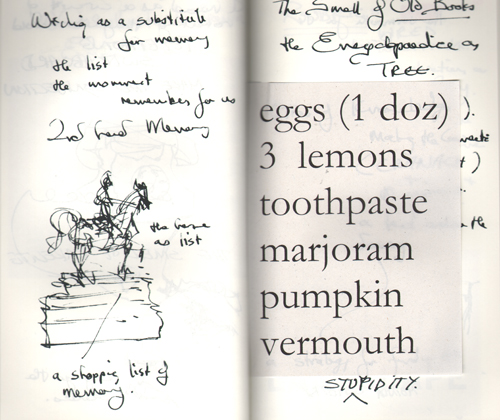 Writing as a substitute
for memory
the list
the monument
remembers for us
2nd hand Memory
the horse
as list
a shopping list of
memory.
The Smell of Old Books
the Encyclopaedia as
TREE.
eggs (1 doz)
3 lemons
toothpaste
marjoram
pumpkin
vermouth
STUPIDITY.